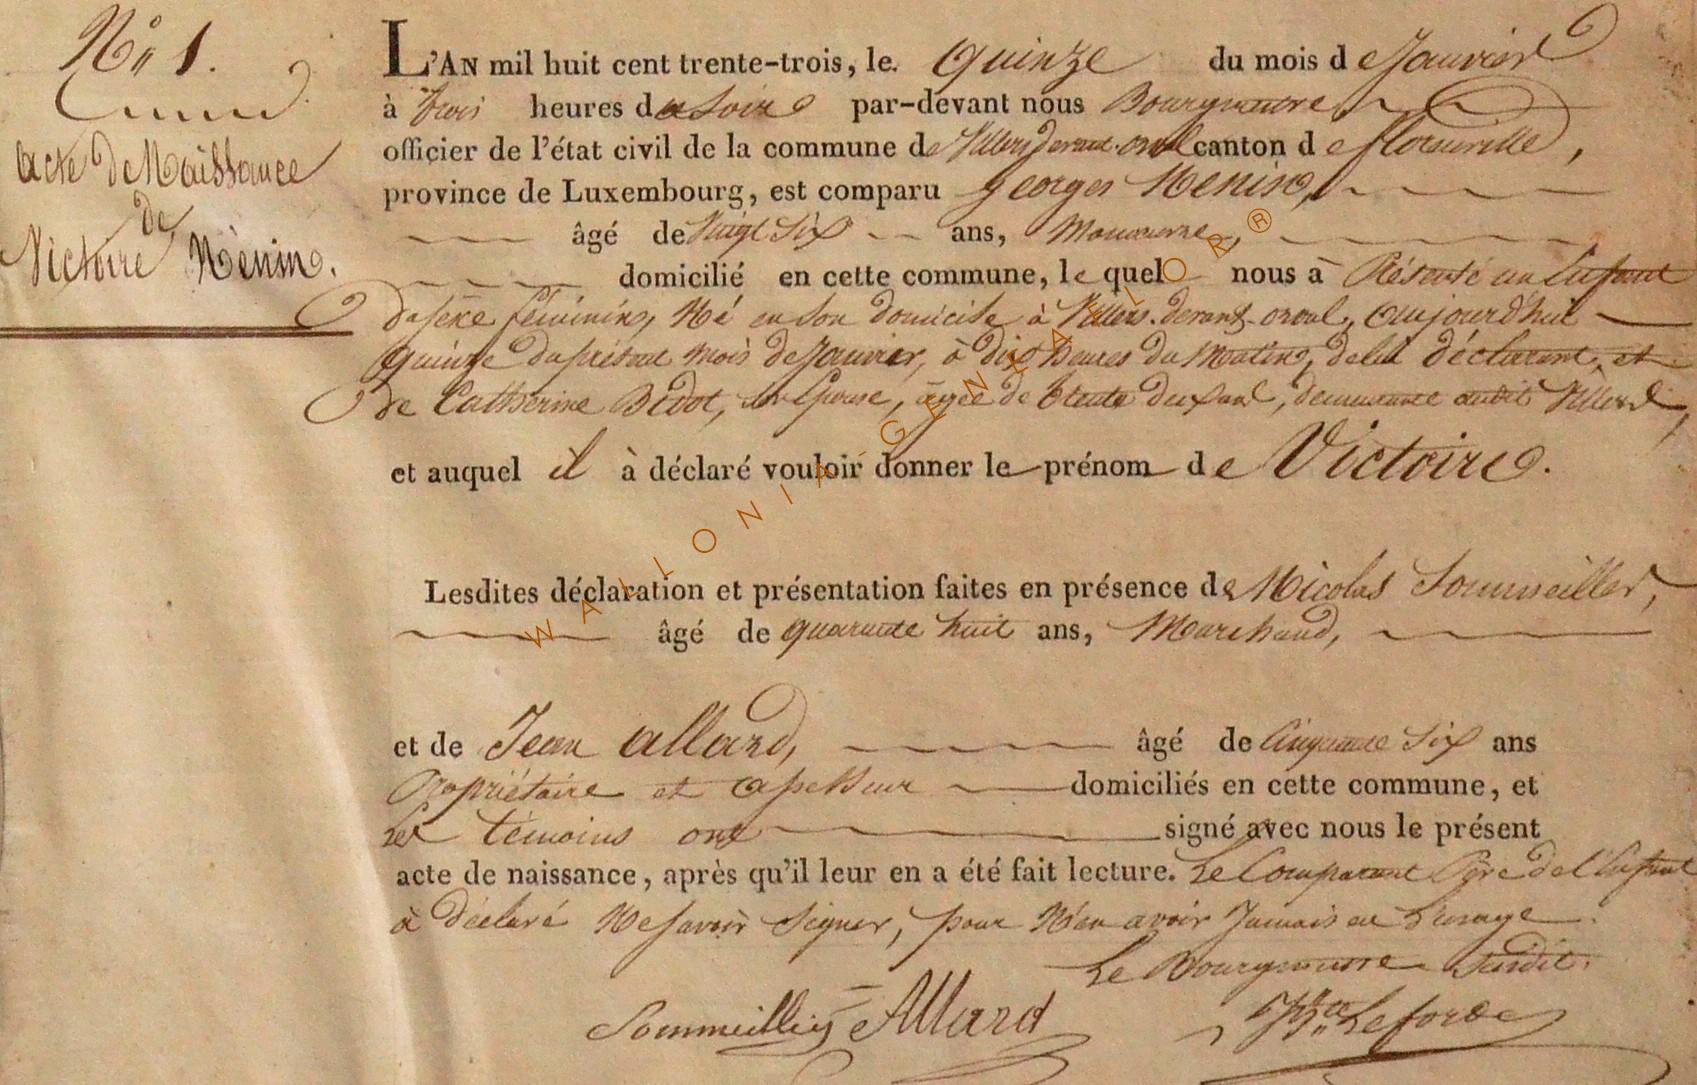 N° 1.
Acte de Naissance
de
Victoire Hénin.
L'AN mil huit cent trente-trois, le quinze du mois de Janvier
à trois heures du soir par-devant nous Bourgmestre
officier de l'état civil de la commune de Villers devant-orval canton de florenville,
province de Luxembourg, est comparu Georges Henin,
âgé de Vingt Six ans, Manœuvre,
domicilié en cette commune, le quel nous à Présenté un Enfant
du sexe féminin, Né en son domicile à Villers-devant-orval, aujourd'hui
quinze du présent mois de Janvier, à dix heures du Matin, de lui déclarant, et
de Catherine Bidot, son Epouse, âgée de trente deux ans, demeurante audit Villers,
et auquel il à déclaré vouloir donner le prénom de Victoire.
Lesdites déclaration et présentation faites en présence de Nicolas Sommeiller,
âgé de quarante huit ans, Marchand,
et de Jean Allard, âgé de Cinquante Six ans
Propriétaire et assesseur domiciliés en cette commune, et
les témoins ont signé avec nous le présent
acte de naissance, après qu'il leur en a été fait lecture. Le Comparant Père de l'Enfant
à déclaré Ne savoir Signer, pour N'en avoir Jamais eu L'usage.
Le Bourgmestre Susdit.
Sommeillier Allard Leforce
WALLONIA-GENEALOR®